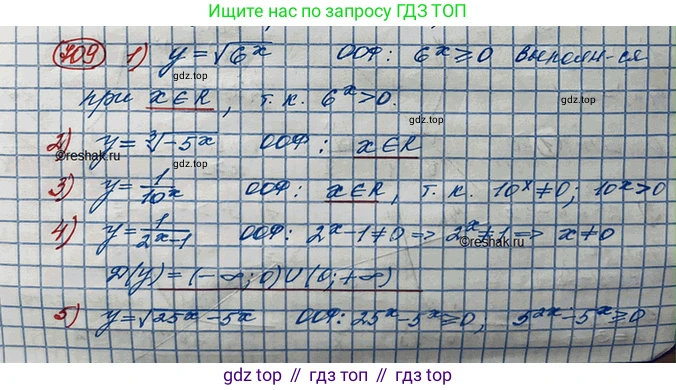 Ищите нас по запросу ГДЗ ТОП
709 1) y=√6ˣ ООФ: 6ˣ≥0 выполн-ся
gdz.top gdz.top
при x∈R, т.к. 6ˣ>0.
gdz.top gdz.top
2) y=∛-5ˣ ООФ: x∈R
©reshak.ru
gdz.top
3) y=1/10ˣ ООФ: x∈R, т.к. 10ˣ≠0; 10ˣ>0
gdz.top
4) y=1/(2ˣ-1) ООФ: 2ˣ-1≠0 => 2ˣ≠1 => x≠0
©reshak.ru
gdz.top
Д(y)=(-∞;0)∪(0;+∞)
gdz.top gdz.top
5) y=√25ˣ-5ˣ ООФ: 25ˣ-5ˣ≥0; 5²ˣ-5ˣ≥0
gdz.top // гдз.топ // gdz.top